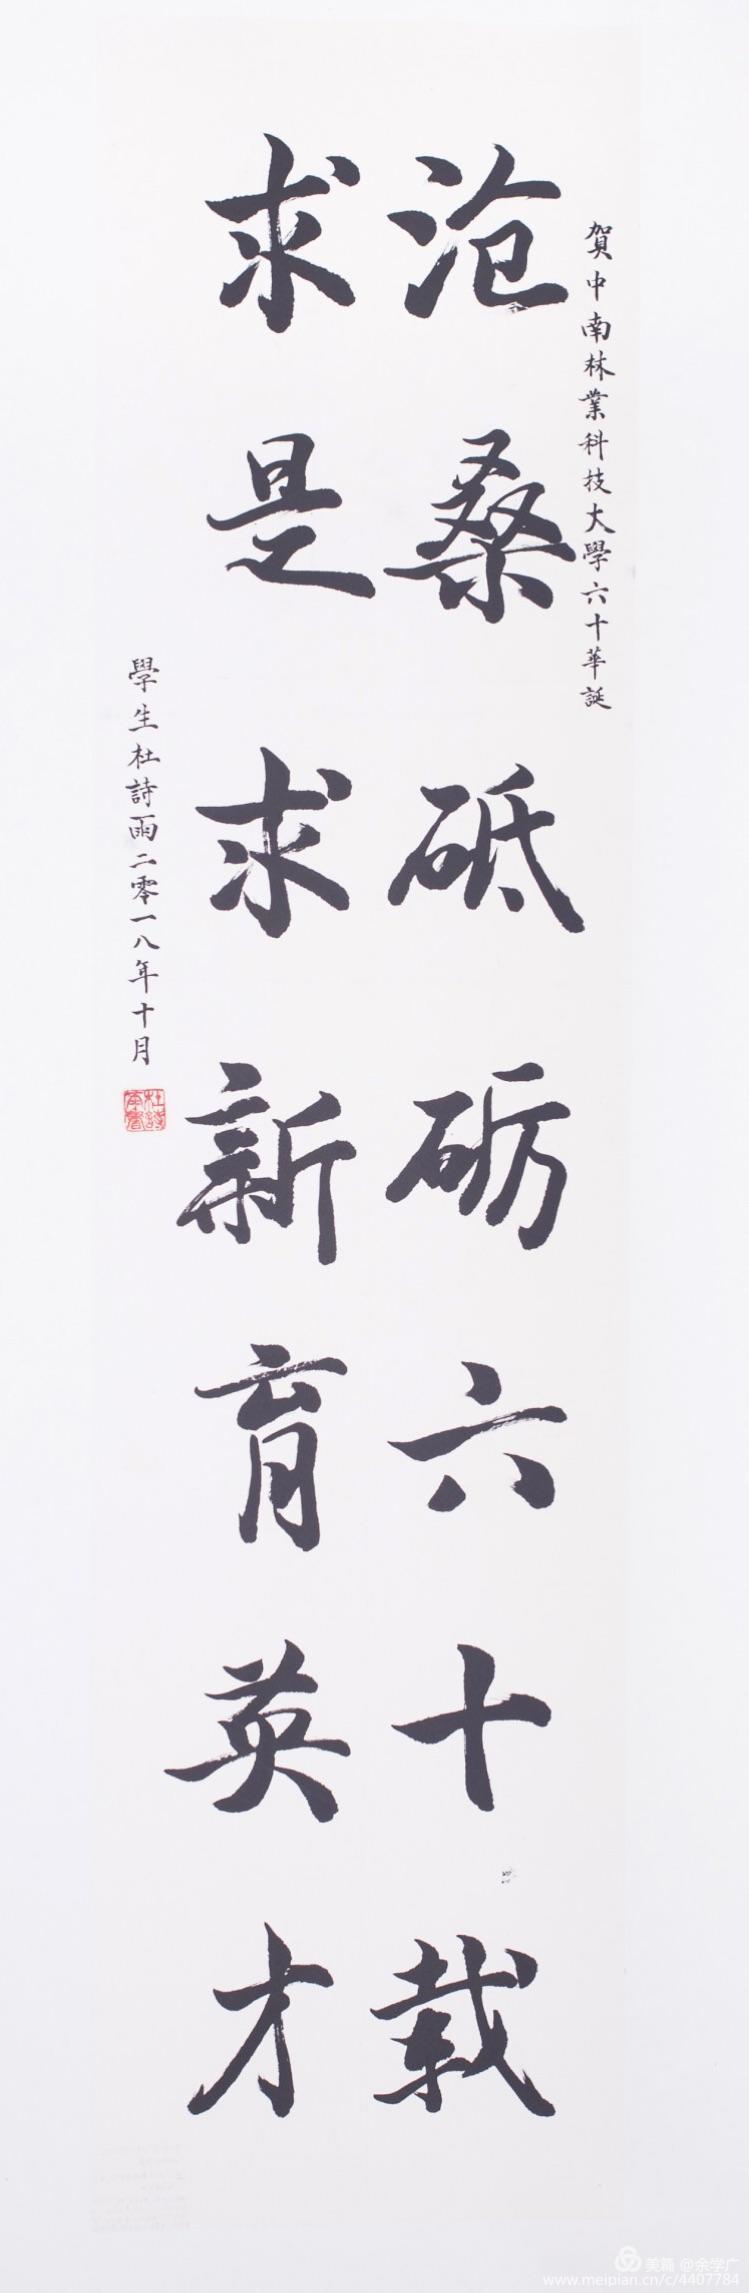 賀中南林業科技大學六十華誕
沧桑砥砺六十载
求是求新育英才
學生杜詩雨二零一八年十月
美篇 @余学广
www.meipian.cn/c/4407784